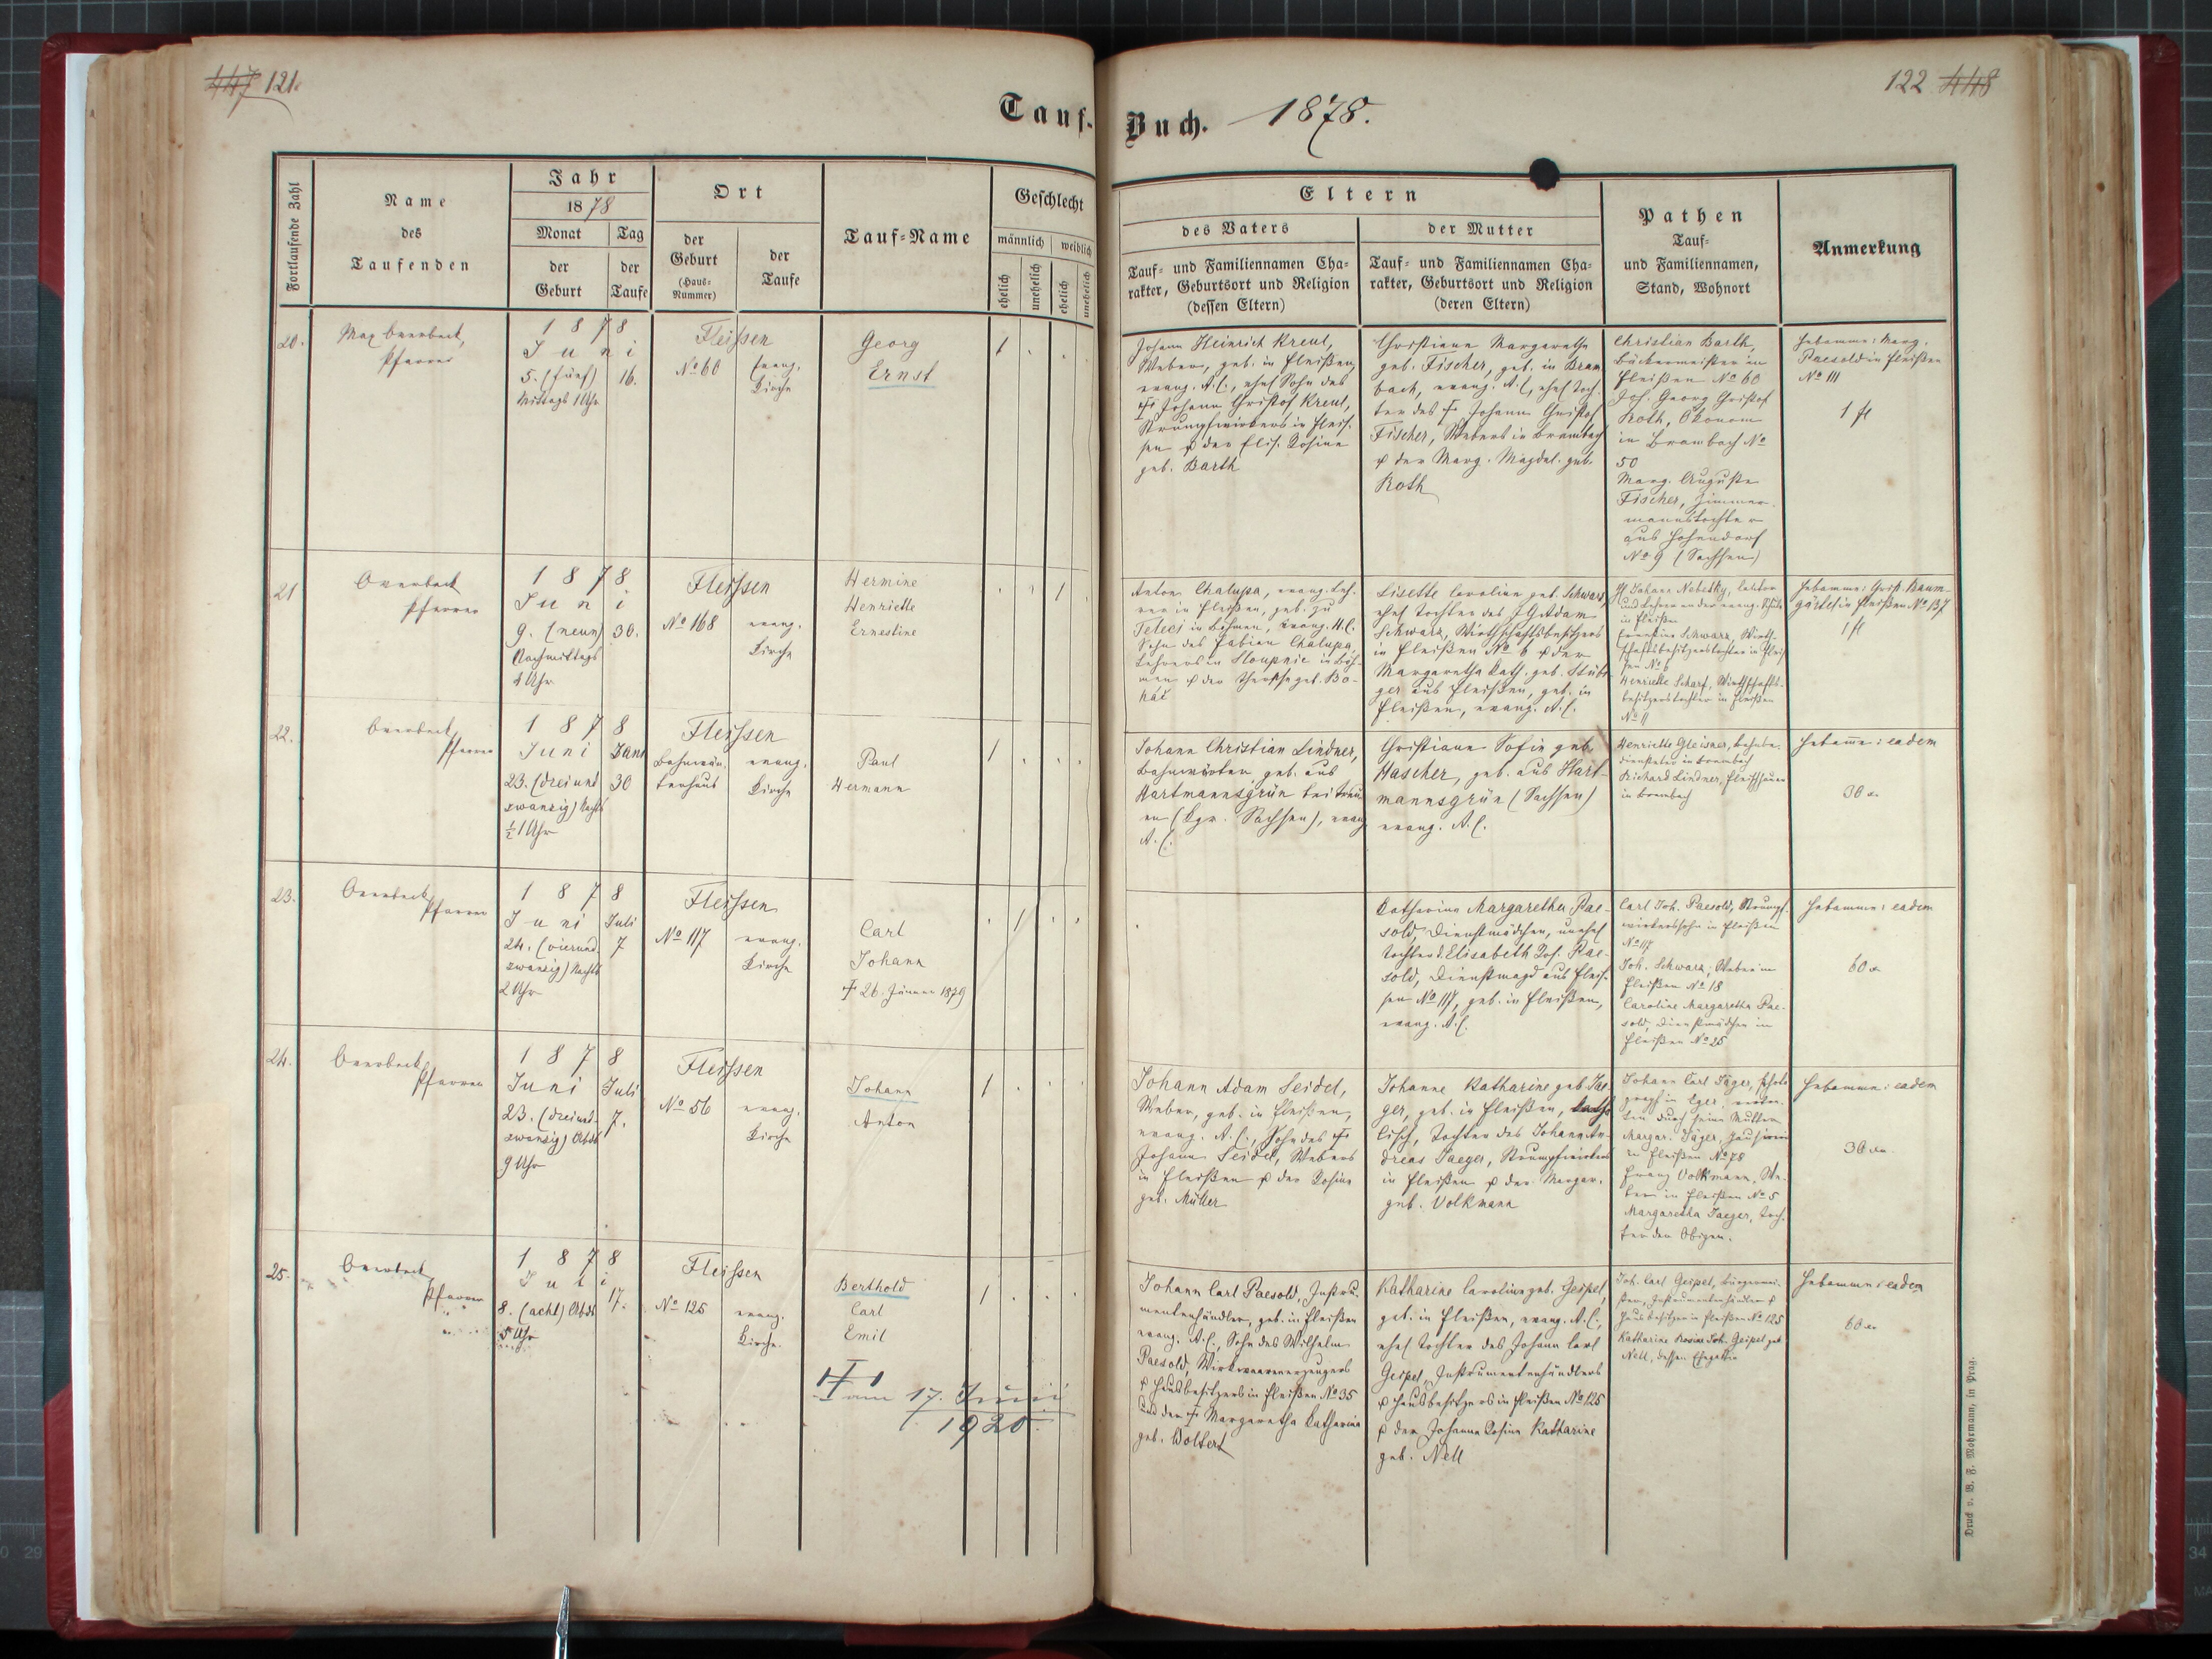 447 121.
122 448
Tauf-Buch. 1878.
Fortlaufende Zahl
Name
des
Taufenden
Jahr
1878
Monat
der
Geburt
Tag
der
Taufe
Ort
der
Geburt
(Haus-
Nummer)
der
Taufe
Tauf-Name
Geschlecht
männlich weiblich
ehelich
unehelich
ehelich
unehelich
Eltern
des Vaters
Tauf- und Familiennamen Cha-
rakter, Geburtsort und Religion
(dessen Eltern)
der Mutter
Tauf- und Familiennamen Cha-
rakter, Geburtsort und Religion
(deren Eltern)
Pathen
Tauf-
und Familiennamen,
Stand, Wohnort
Anmerkung
20.
Max Overbeck,
Pfarrer
1878
Juni
5. (fünf) 16.
Mittags 1 Uhr
Fleissen
No 60 evang.
Kirche
Georg
Ernst
1
Johann Heinrich Kreul,
Weber, geb. in Fleißen,
evang. A.C., ehel Sohn des
† Johann Christof Kreul,
Strumpfwirkers in Fleis-
sen & der Elis. Rosine
geb. Barth
Christiane Margarethe
geb. Fischer, geb. in Bram
bach, evang. A.C, ehel Toch-
ter des † Johann Christof
Fischer, Webers in Brambach
& der Marg. Magdal. geb.
Roth
Christian Barth,
Bäckermeister in
Fleißen No 60
Joh. Georg Christof
Roth, Ökonom
in Brambach No
50
Marg. Auguste
Fischer, Zimmer-
mannstochter
aus Hohendorf
No 9 (Sachsen)
Hebamme: Marg.
Paesold in Fleißen
No 111
1 fl
21
Overbeck
Pfarrer
1878
Juni
9. (neun) 30.
Nachmittags
4 Uhr
Fleissen
No 168 evang.
Kirche
Hermine
Henriette
Ernestine
1
Anton Chalupa, evang. Leh-
rer in Fleißen, geb. zu
Teleci in Böhmen, evang. H.C.
Sohn des Fabian Chalupa,
Lehrers in Sloupnic in Böh-
men & der Therese geb. Bo-
háč
Lisette Caroline geb. Schwarz,
ehel Tochter des J G Adam
Schwarz, Wirthschaftsbesitzers
in Fleißen No 6 & der
Margaretha Kath. geb. Stübi-
ger aus Fleißen, geb. in
Fleißen, evang. A.C.
H. Johann Nebesky, Cantor
und Lehrer an der evang. Schule
in Fleißen
Ernestine Schwarz, Wirth-
schaftsbesitzerstochter in Fleis-
sen No 6
Henriette Scharf, Wirthschafts-
besitzerstochter in Fleißen
No 11
Hebamme: Christ. Baum-
gärtel in Fleißen No 137
1 fl
22.
Overbeck
Pfarrer
1878
Juni Juni
23. (drei und 30
zwanzig) Nachts
½ 1 Uhr
Fleissen
Bahnwär- evang.
terhaus Kirche
Paul
Hermann
1
Johann Christian Lindner,
Bahnwärter, geb. aus
Hartmannsgrün bei Treu-
en (Kgr. Sachsen), evang
A.C.
Christiane Sofie geb.
Hascher, geb. aus Hart-
mannsgrün (Sachsen)
evang. A.C.
Henriette Gleisner,
in Brambach
Richard Lindner, Fleischhauer
in Brambach
Hebamme: eadem
30 xr
23.
Overbeck
Pfarrer
1878
Juni Juli
24. (vierund- 7
zwanzig) Nachts
2 Uhr
Fleissen
No 117 evang.
Kirche
Carl
Johann
† 26. Jänner 1879
1
Catharina Margaretha Pae-
sold, Dienstmädchen, unehel
Tochter d. Elisabeth Paе-
sold, Dienstmagd aus Fleis-
sen No 117, geb. in Fleißen,
evang. A.C.
Carl Joh. Paesold, Strumpf-
wirkerssohn in Fleißen
No 117
Joh. Schwarz, Weber in
Fleißen No 18
Caroline Margaretha Pae-
sold, Dienstmädchen in
Fleißen No 25
Hebamme: eadem
60 xr
24.
Overbeck
Pfarrer
1878
Juni Juli
23. (dreiund- 7.
zwanzig) Abds
9 Uhr
Fleissen
No 56 evang.
Kirche
Johann
Anton
1
Johann Adam Seidel,
Weber, geb. in Fleißen,
evang. A.C., Sohn des †
Johann Seidel, Webers
in Fleißen & der Rosine
geb. Müller
Johanne Katharine geb Jae-
ger, geb. in Fleißen, katho
lisch, Tochter des Johann An-
dreas Jaeger, Strumpfwirkers
in Fleißen & der Margar.
geb. Volkmann
Johann Carl Jäger, Photo
graf in Eger, vertre-
ten durch seine Mutter
Margar. Jäger,
in Fleißen No 78
Franz Volkmann, We-
ber in Fleißen No 5
Margaretha Jaeger, Toch-
ter der Obigen.
Hebamme: eadem
30 xr
25.
Overbeck
Pfarrer
1878
Juli
8. (acht) Abds 17.
5 Uhr
Fleissen
No 125 evang.
Kirche.
Berthold
Carl
Emil
† am 17. Juni
1920.
1
Johann Carl Paesold, Instru-
mentenhändler, geb. in Fleißen
evang. A.C., Sohn des Wilhelm
Paesold, Wirkwaarenerzeugers
& Hausbesitzers in Fleißen No 35
und der † Margaretha Catharina
geb. Wolfert
Katharine Caroline geb. Geipel,
geb. in Fleißen, evang. A.C.,
ehel Tochter des Johann Carl
Geipel, Instrumentenhändlers
& Hausbesitzers in Fleißen No 125
& der Johanne Rosine Katharine
geb. Nell
Joh. Carl Geipel, Bürgermei-
ster, Instrumentenhändler &
Hausbesitzer in Fleißen No 125
Katharine Rosine Joh. Geipel geb
Nell, dessen Ehegattin
Hebamme: eadem
60 xr
Druck v. B. F. Mohrmann, in Prag.